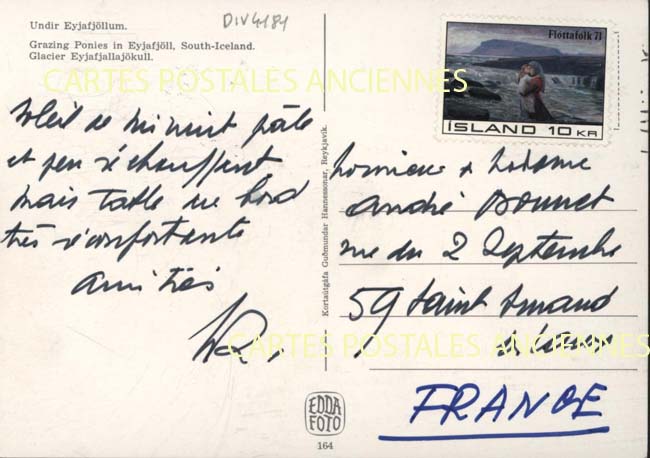 Undir Eyjafjöllum.
DIV4184
Grazing Ponies in Eyjafjöll, South-Iceland.
Glacier Eyjafjallajökull.
CARTES POSTALES ANCIENNES
Flóttafolk 71
ÍSLAND 10 KR
Soleil de minuit pâle
et peu réchauffant
mais table de bord
très réconfortante
amitiés
Kortaútgáfa Guðmundar Hannessonar, Reykjavík.
Monsieur & Madame
André Bonnet
rue du 2 Septembre
59 Saint Amand
CARTES POSTALES ANCIENNES
FRANCE
EDDA
FOTO
164